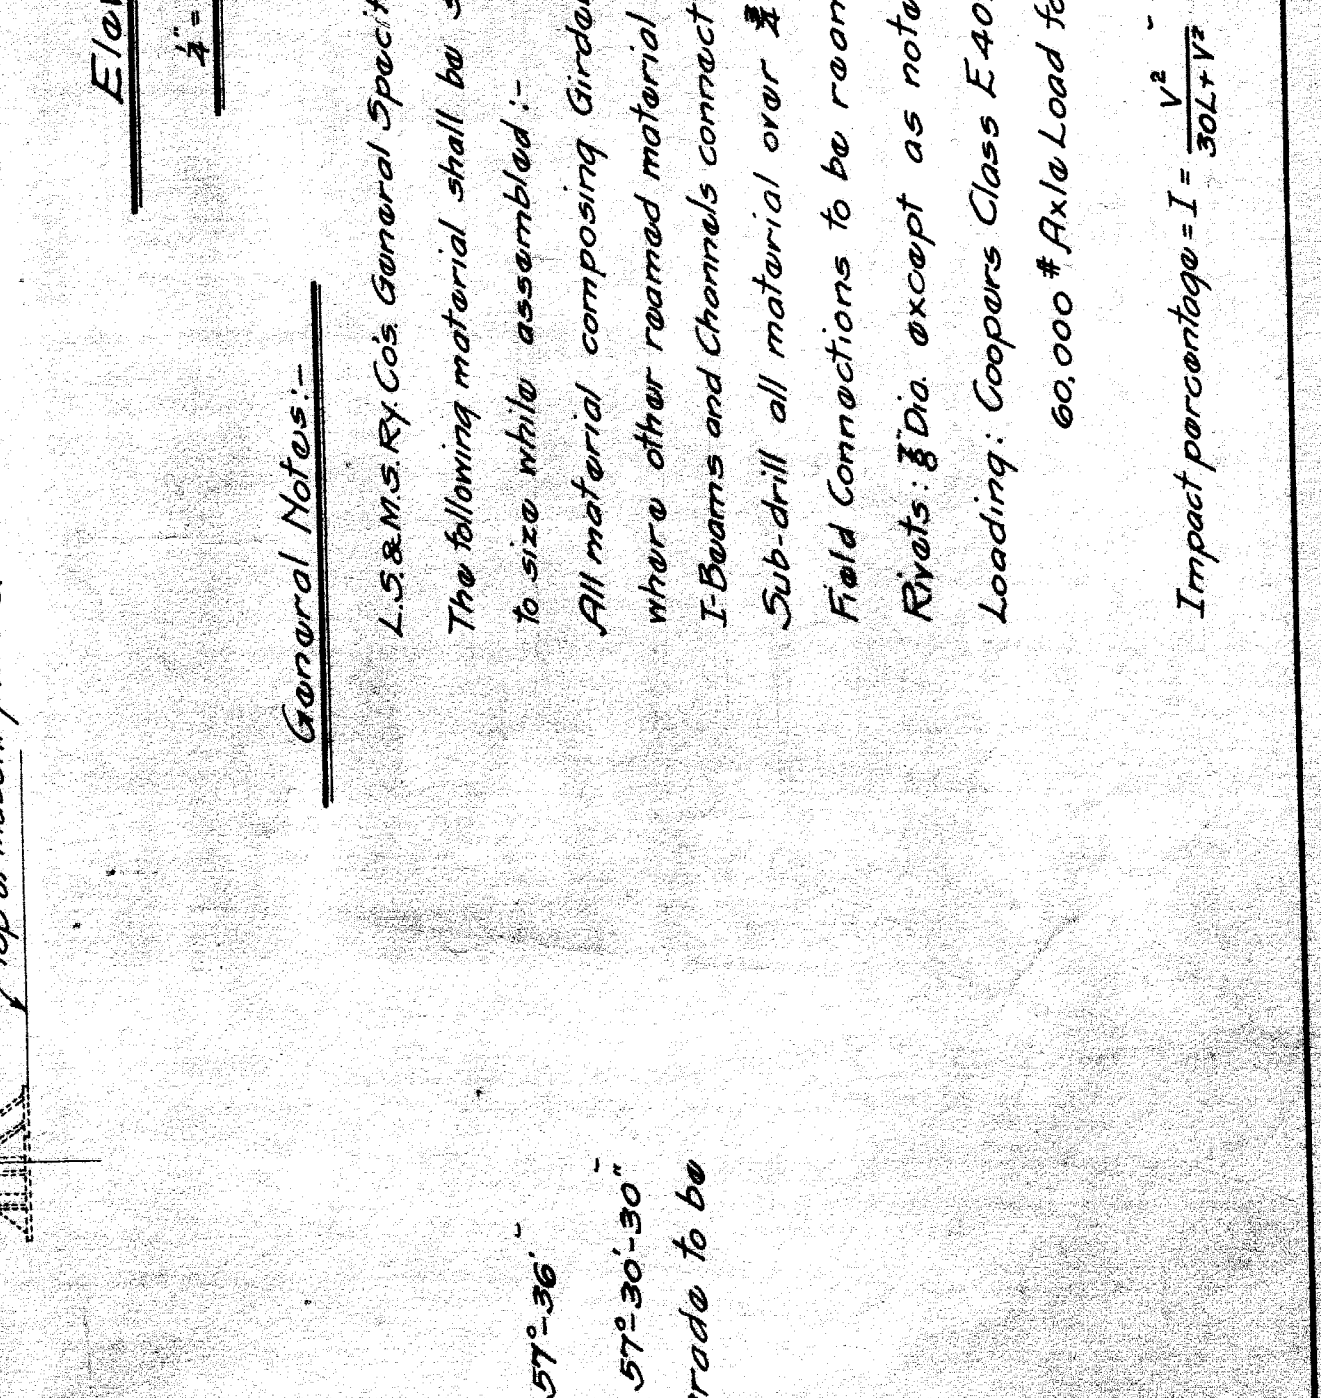 Top of
Elev
1/4" =
General Notes:-
L.S.& M.S. Ry. Co's. General Specif
The following material shall be s
to size while assembled:-
All material composing Girde
where other reamed material
I-Beams and Channels connect
Sub-drill all material over 3/4
Field Connections to be ream
Rivets: 7/8" Dia. except as note
Loading: Coopers Class E 40.
60,000 # Axle Load fo
Impact percentage = I = V²/30L+V²
57°-36'
57°-30'-30"
rade to be